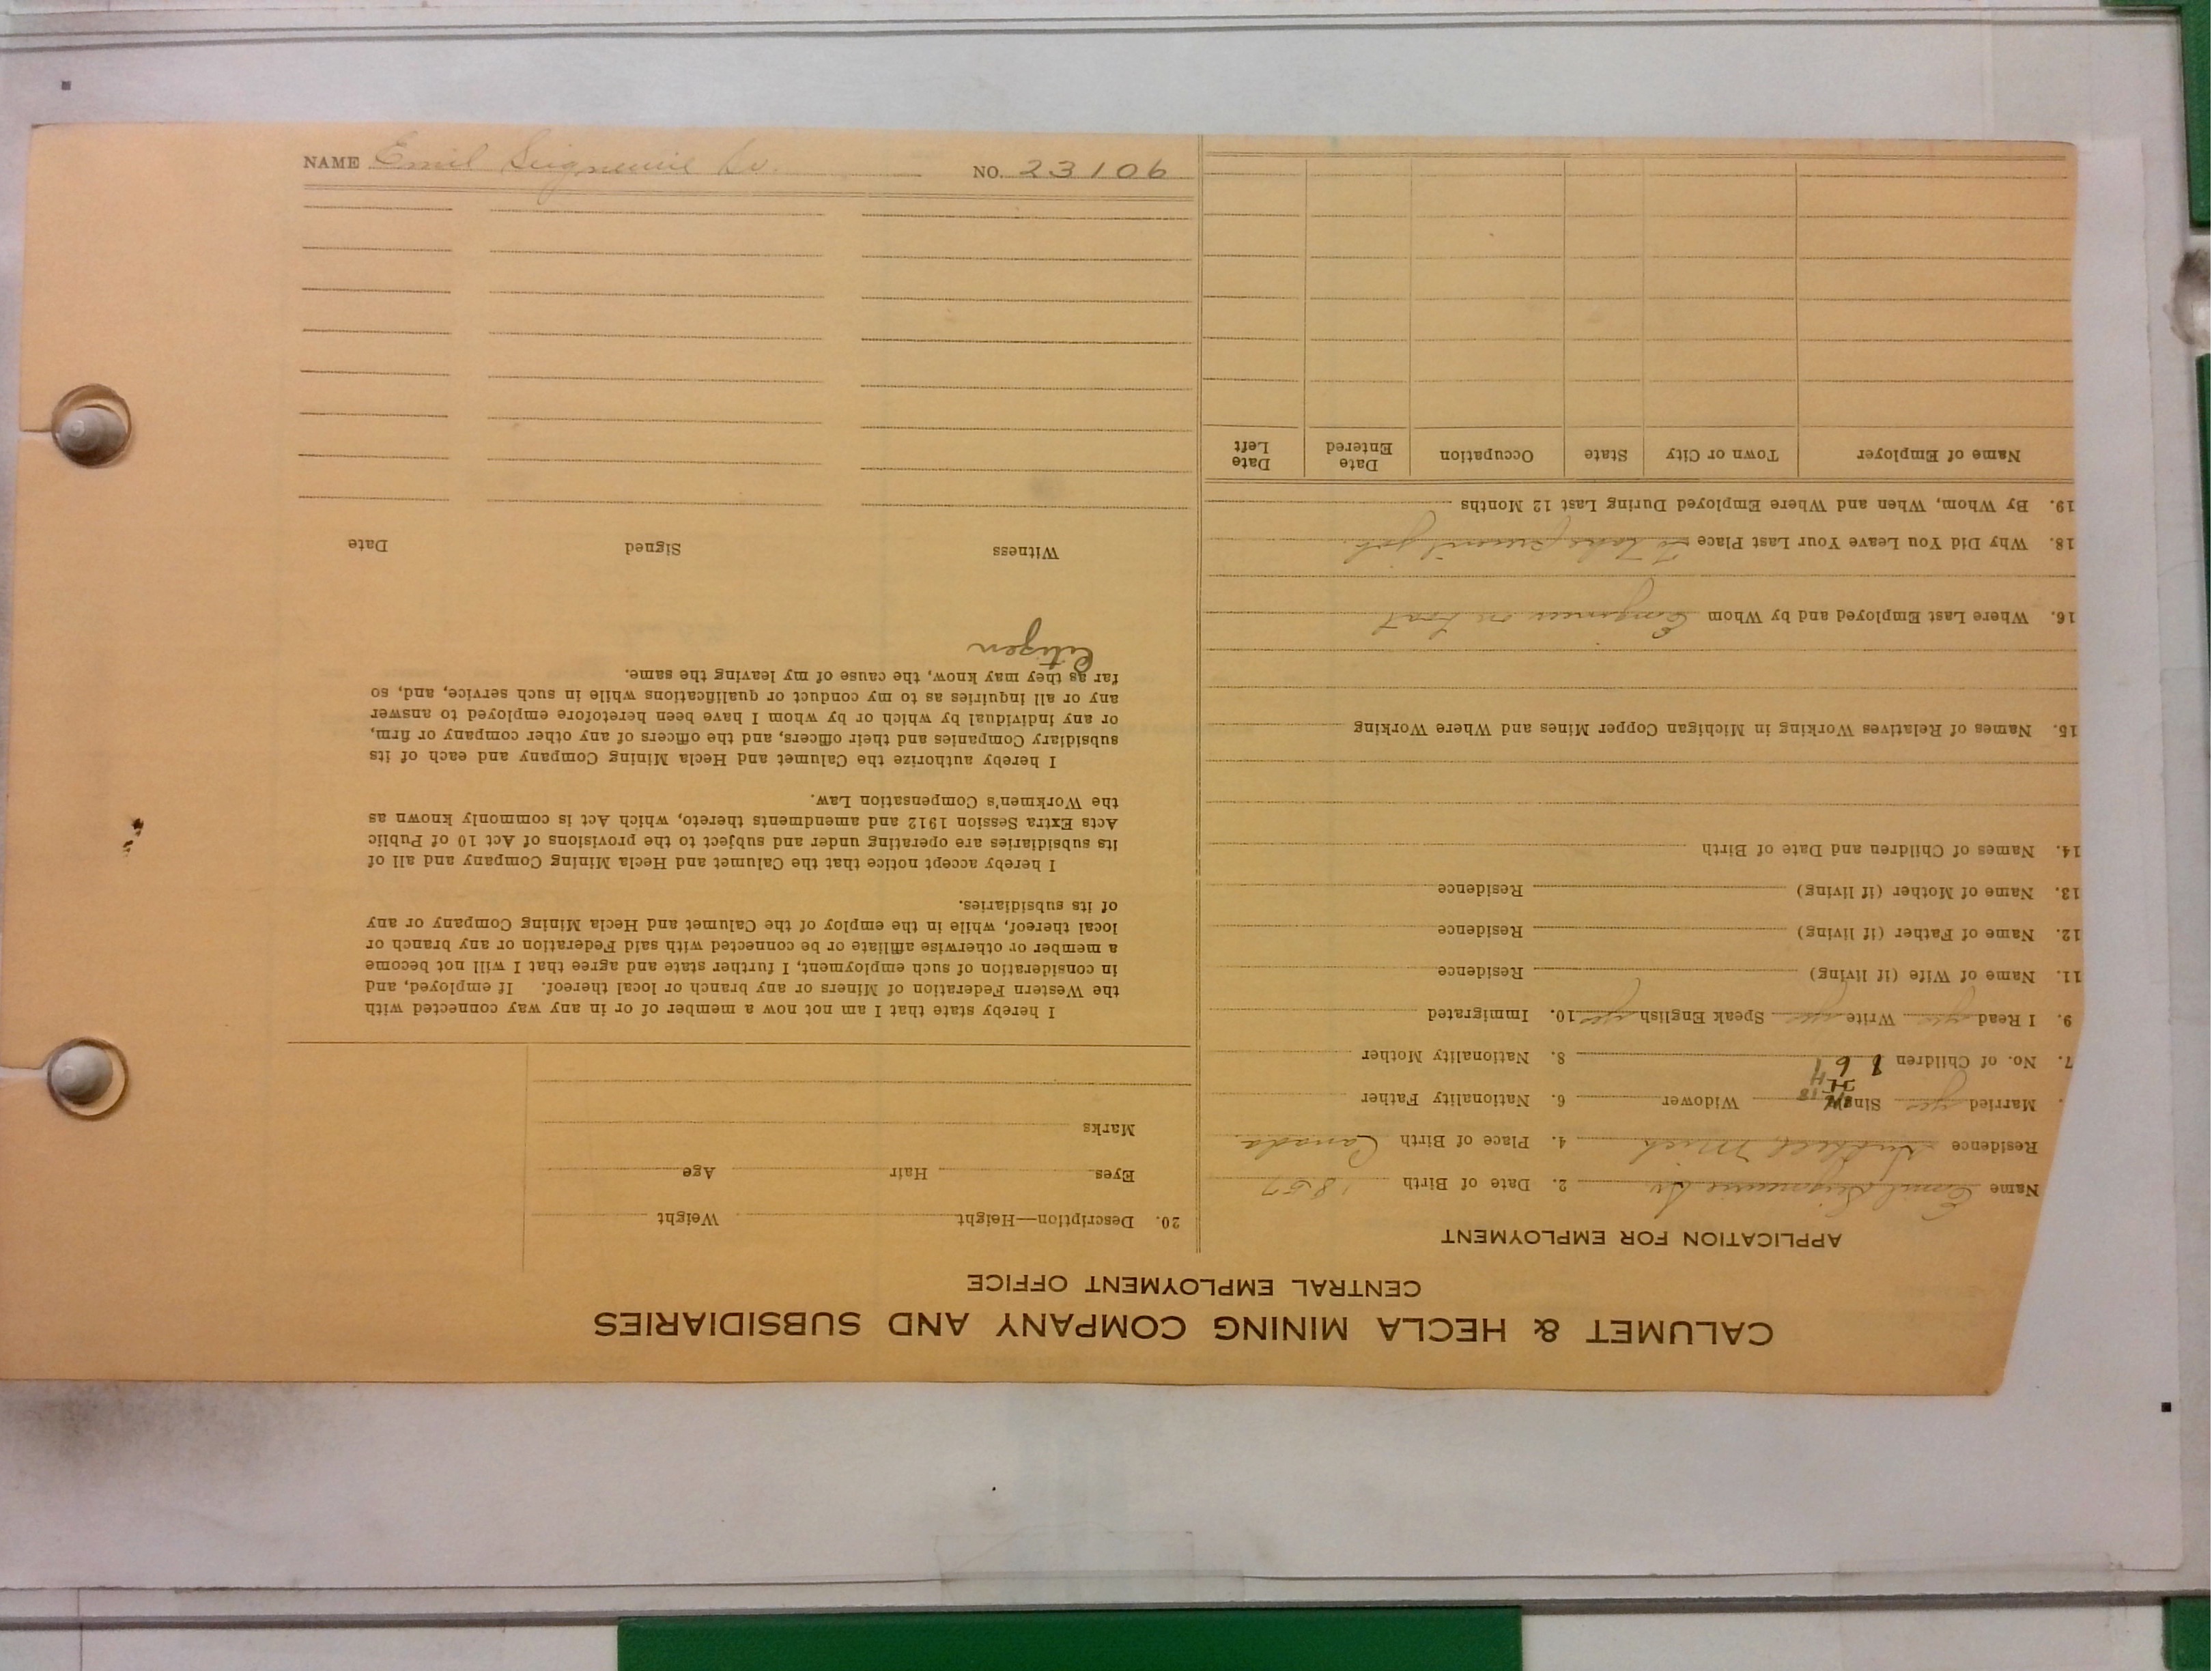 NAME Emil Seigneurie Sr. NO. 23106
CALUMET & HECLA MINING COMPANY AND SUBSIDIARIES
CENTRAL EMPLOYMENT OFFICE
APPLICATION FOR EMPLOYMENT
Name Emil Seigneurie Sr 2. Date of Birth 1857
Residence Hubbell Mich 4. Place of Birth Canada
Married yes Single Widower 6. Nationality Father
7. No. of Children 6 8. Nationality Mother
9. I Read yes Write yes Speak English yes 10. Immigrated
11. Name of Wife (if living) Residence
12. Name of Father (if living) Residence
13. Name of Mother (if living) Residence
14. Names of Children and Date of Birth
15. Names of Relatives Working in Michigan Copper Mines and Where Working
16. Where Last Employed and by Whom Engineer on boat
18. Why Did You Leave Your Last Place To take present job.
19. By Whom, When and Where Employed During Last 12 Months
Name of Employer Town or City State Occupation Date Entered Date Left
20. Description—Height Weight
Eyes Hair Age
Marks
I hereby state that I am not now a member of or in any way connected with
the Western Federation of Miners or any branch or local thereof. If employed, and
in consideration of such employment, I further state and agree that I will not become
a member or otherwise affiliate or be connected with said Federation or any branch or
local thereof, while in the employ of the Calumet and Hecla Mining Company or any
of its subsidiaries.
I hereby accept notice that the Calumet and Hecla Mining Company and all of
its subsidiaries are operating under and subject to the provisions of Act 10 of Public
Acts Extra Session 1912 and amendments thereto, which Act is commonly known as
the Workmen's Compensation Law.
I hereby authorize the Calumet and Hecla Mining Company and each of its
subsidiary Companies and their officers, and the officers of any other company or firm,
or any individual by which or by whom I have been heretofore employed to answer
any or all inquiries as to my conduct or qualifications while in such service, and, so
far as they may know, the cause of my leaving the same.
Citizen
Witness Signed Date